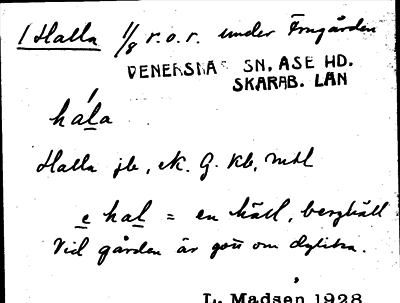 1 Halla 1/8 r.o.r. under Frugården
VENERSNÄS SN, ÅSE HD.
SKARAB. LÄN
hala
Halla jb, ek. G. kb, mtl
e hal = en häll, berghäll
Vid gården är gott om dylika.
L. Madsen 1928